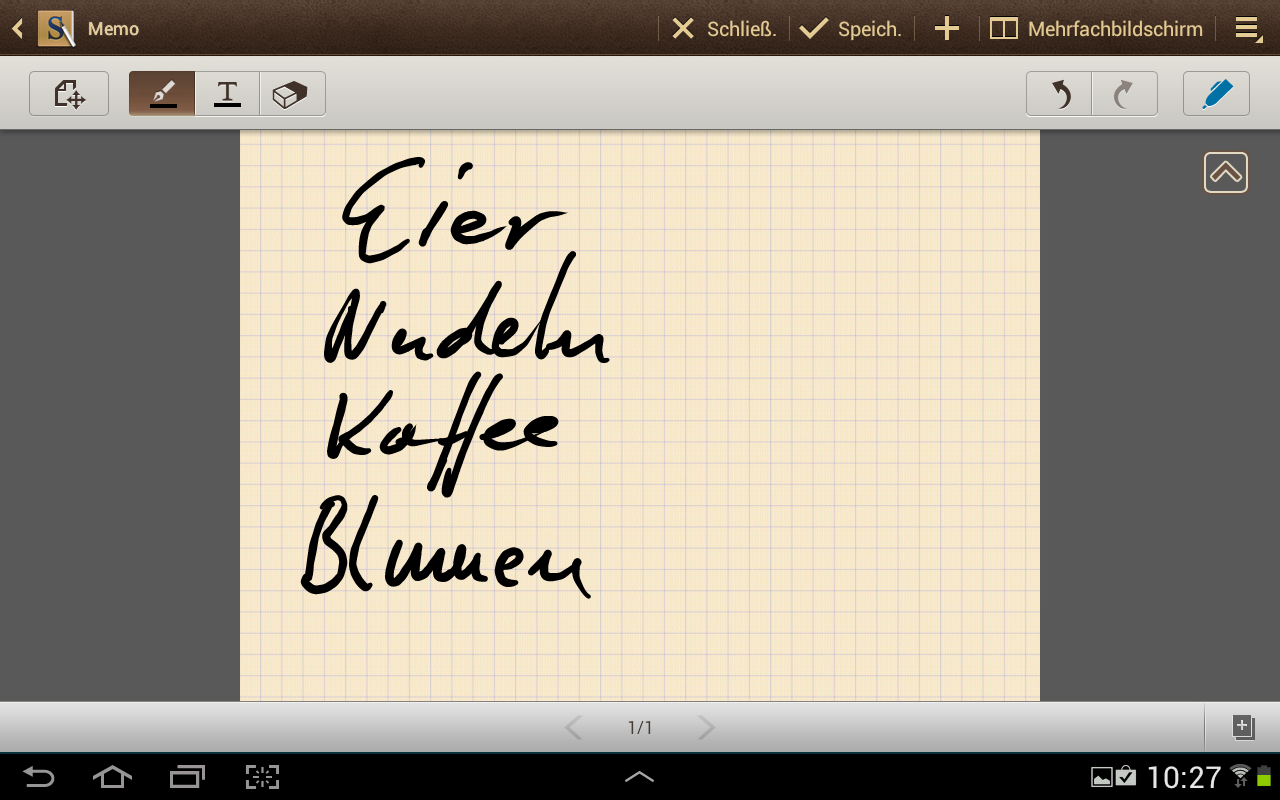 Memo Schließ. Speich. Mehrfachbildschirm
T
Eier
Nudeln
Kaffee
Blumen
1/1
10:27